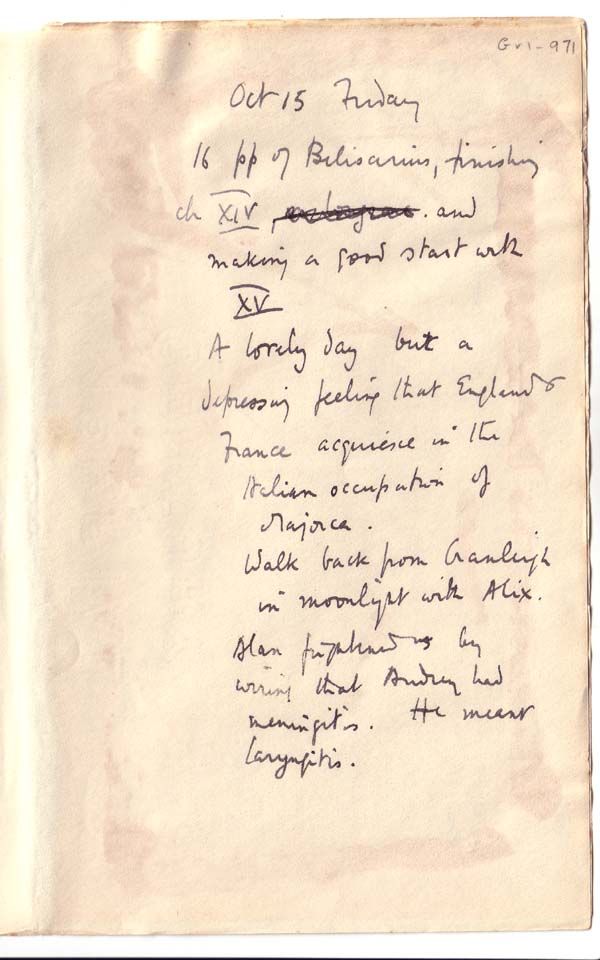 GVI-971
Oct 15 Friday
16 pp of Belisarius, finishing
ch XIV, and
making a good start with
XV
A lovely day but a
depressing feeling that England &
France acquiesce in the
Italian occupation of
Majorca.
Walk back from Cranleigh
in moonlight with Alix.
Alan frightened us by
wiring that Audrey had
meningitis. He meant
laryngitis.